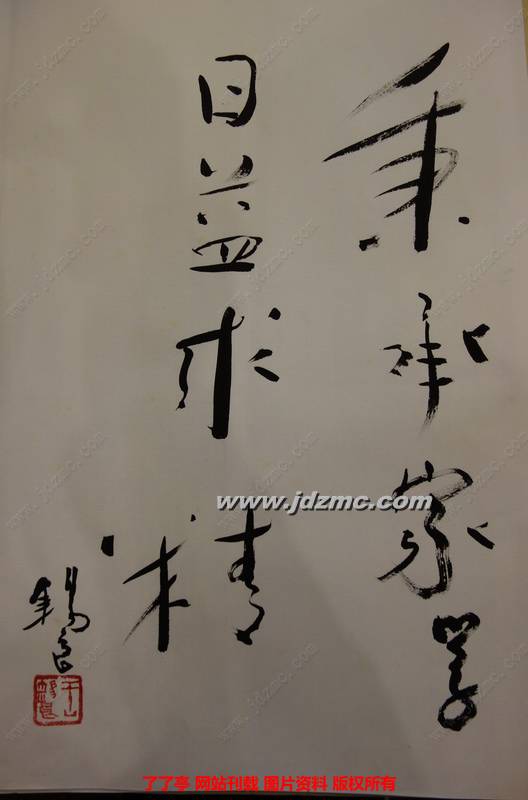 秉承家学
日益求精
錫良
www.jdzmc.com
了了亭 网站刊载 图片资料 版权所有